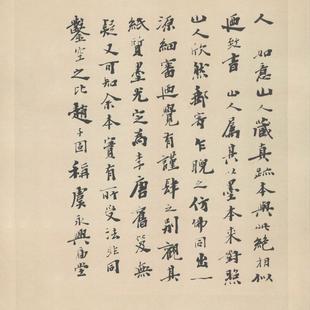 人 如意山人藏真跡本與此絕相似
迺致書 山人屬其以墨本來對照
山人欣然郵寄乍睨之仿佛同出一
源細審迺覺有謹肆之別觀其
紙質墨光定為李唐舊笈無
疑又可知余本實有所受法非同
鑿空之比趙子固稱虞永興廟堂